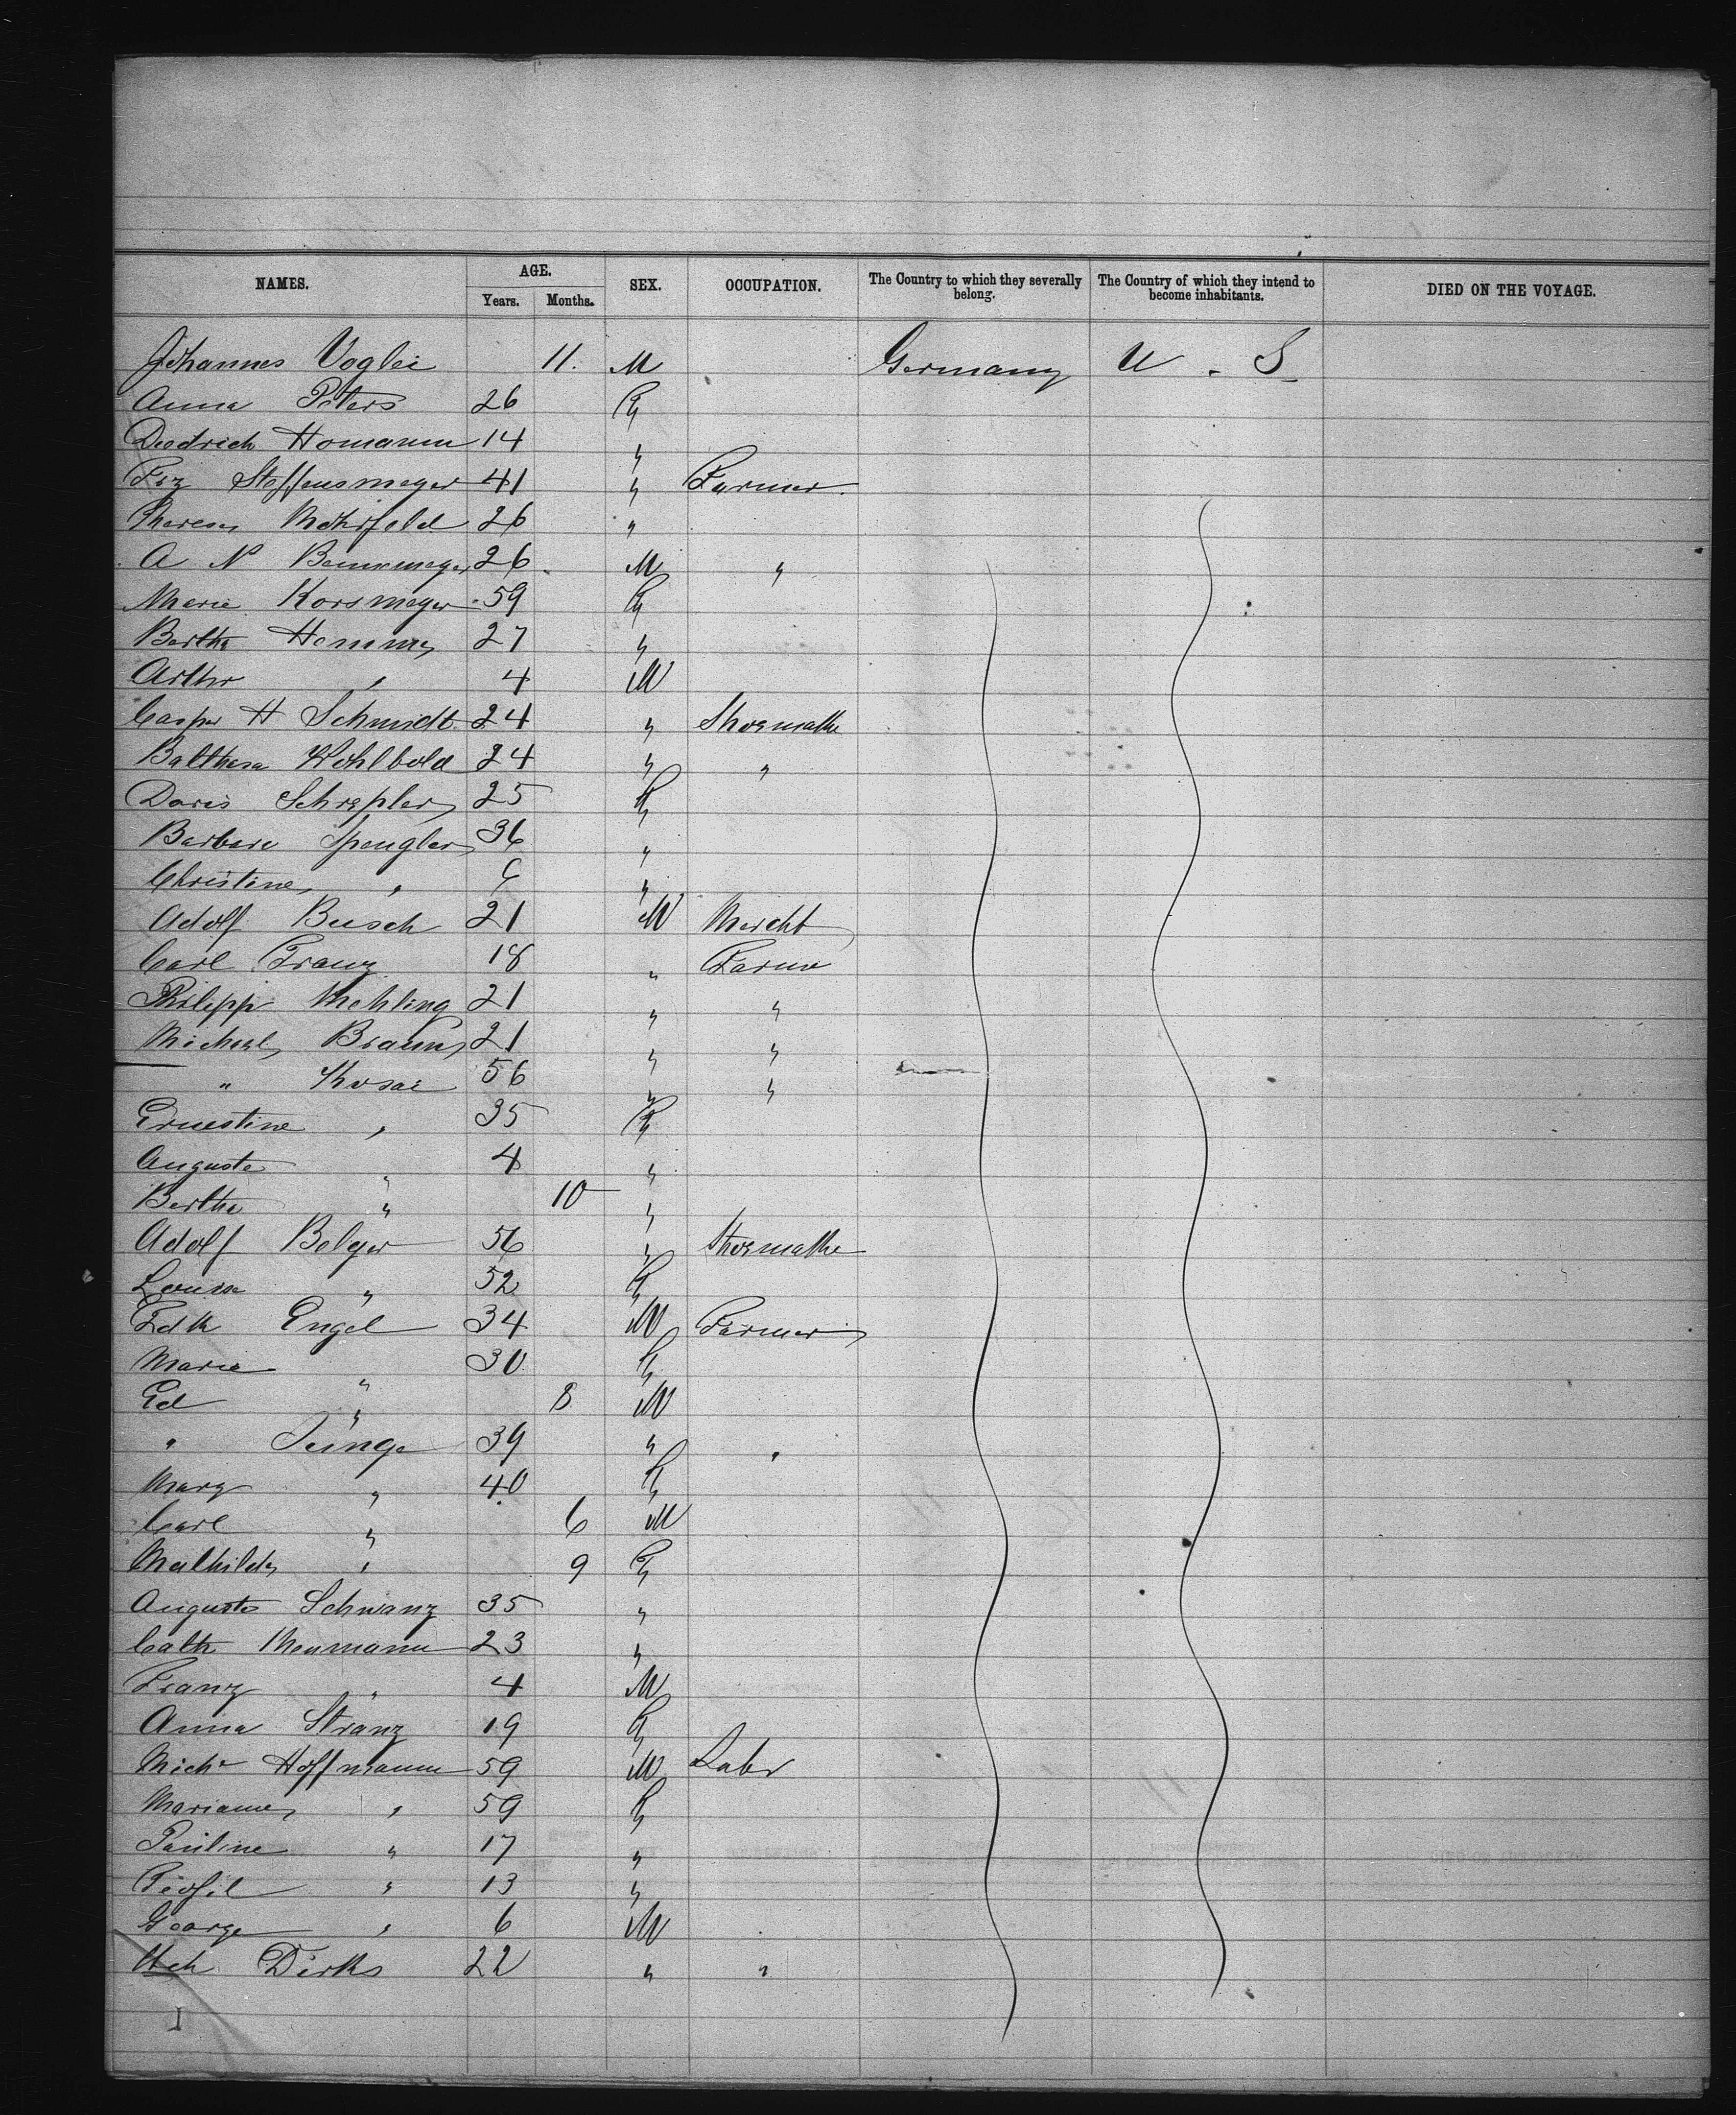 NAMES. AGE. Years. Months. SEX. OCCUPATION. The Country to which they severally belong. The Country of which they intend to become inhabitants. DIED ON THE VOYAGE.
Johannes 11. M Germany U. S.
Anna Peters 26 F
Diedrich Homann 14 "
Frz Steffensmeyer 41 " Farmer.
Theresa 26 "
A N 26 M "
Marie Korsmeyer 59 F
Bertha Hemme 27 "
Arthr " 4 M
Casper H Schmidt 24 " Shoemake
Balthasa Wohlbold 24 " "
Doris Schrepler 25 F
Barbara Spengler 36 "
Christine " 6 "
Adolf Busch 21 M Mercht
Carl Franz 18 " Farme
Philipp Mehling 21 " "
Michael Braun 21 " "
" 56 " "
Ernestine " 35 F
Auguste " 4 "
Bertha " 10 "
Adolf Belger 56 " Shoemake
Louise " 52 F
Fdk Engel 34 M Farmer
Maria " 30 F
Ed " 8 M
" Junge 39 " "
Marg " 40 F
Carl " 6 M
Mathilde " 9 F
Auguste Schwanz 35 "
Cath 23 "
Franz " 4 M
Anna Stranz 19 F
Michl Hoffmann 59 M Labr
Marianne " 59 F
Pauline " 17 "
Teofil " 13 "
George " 6 M
Hch Dirks 22 " "